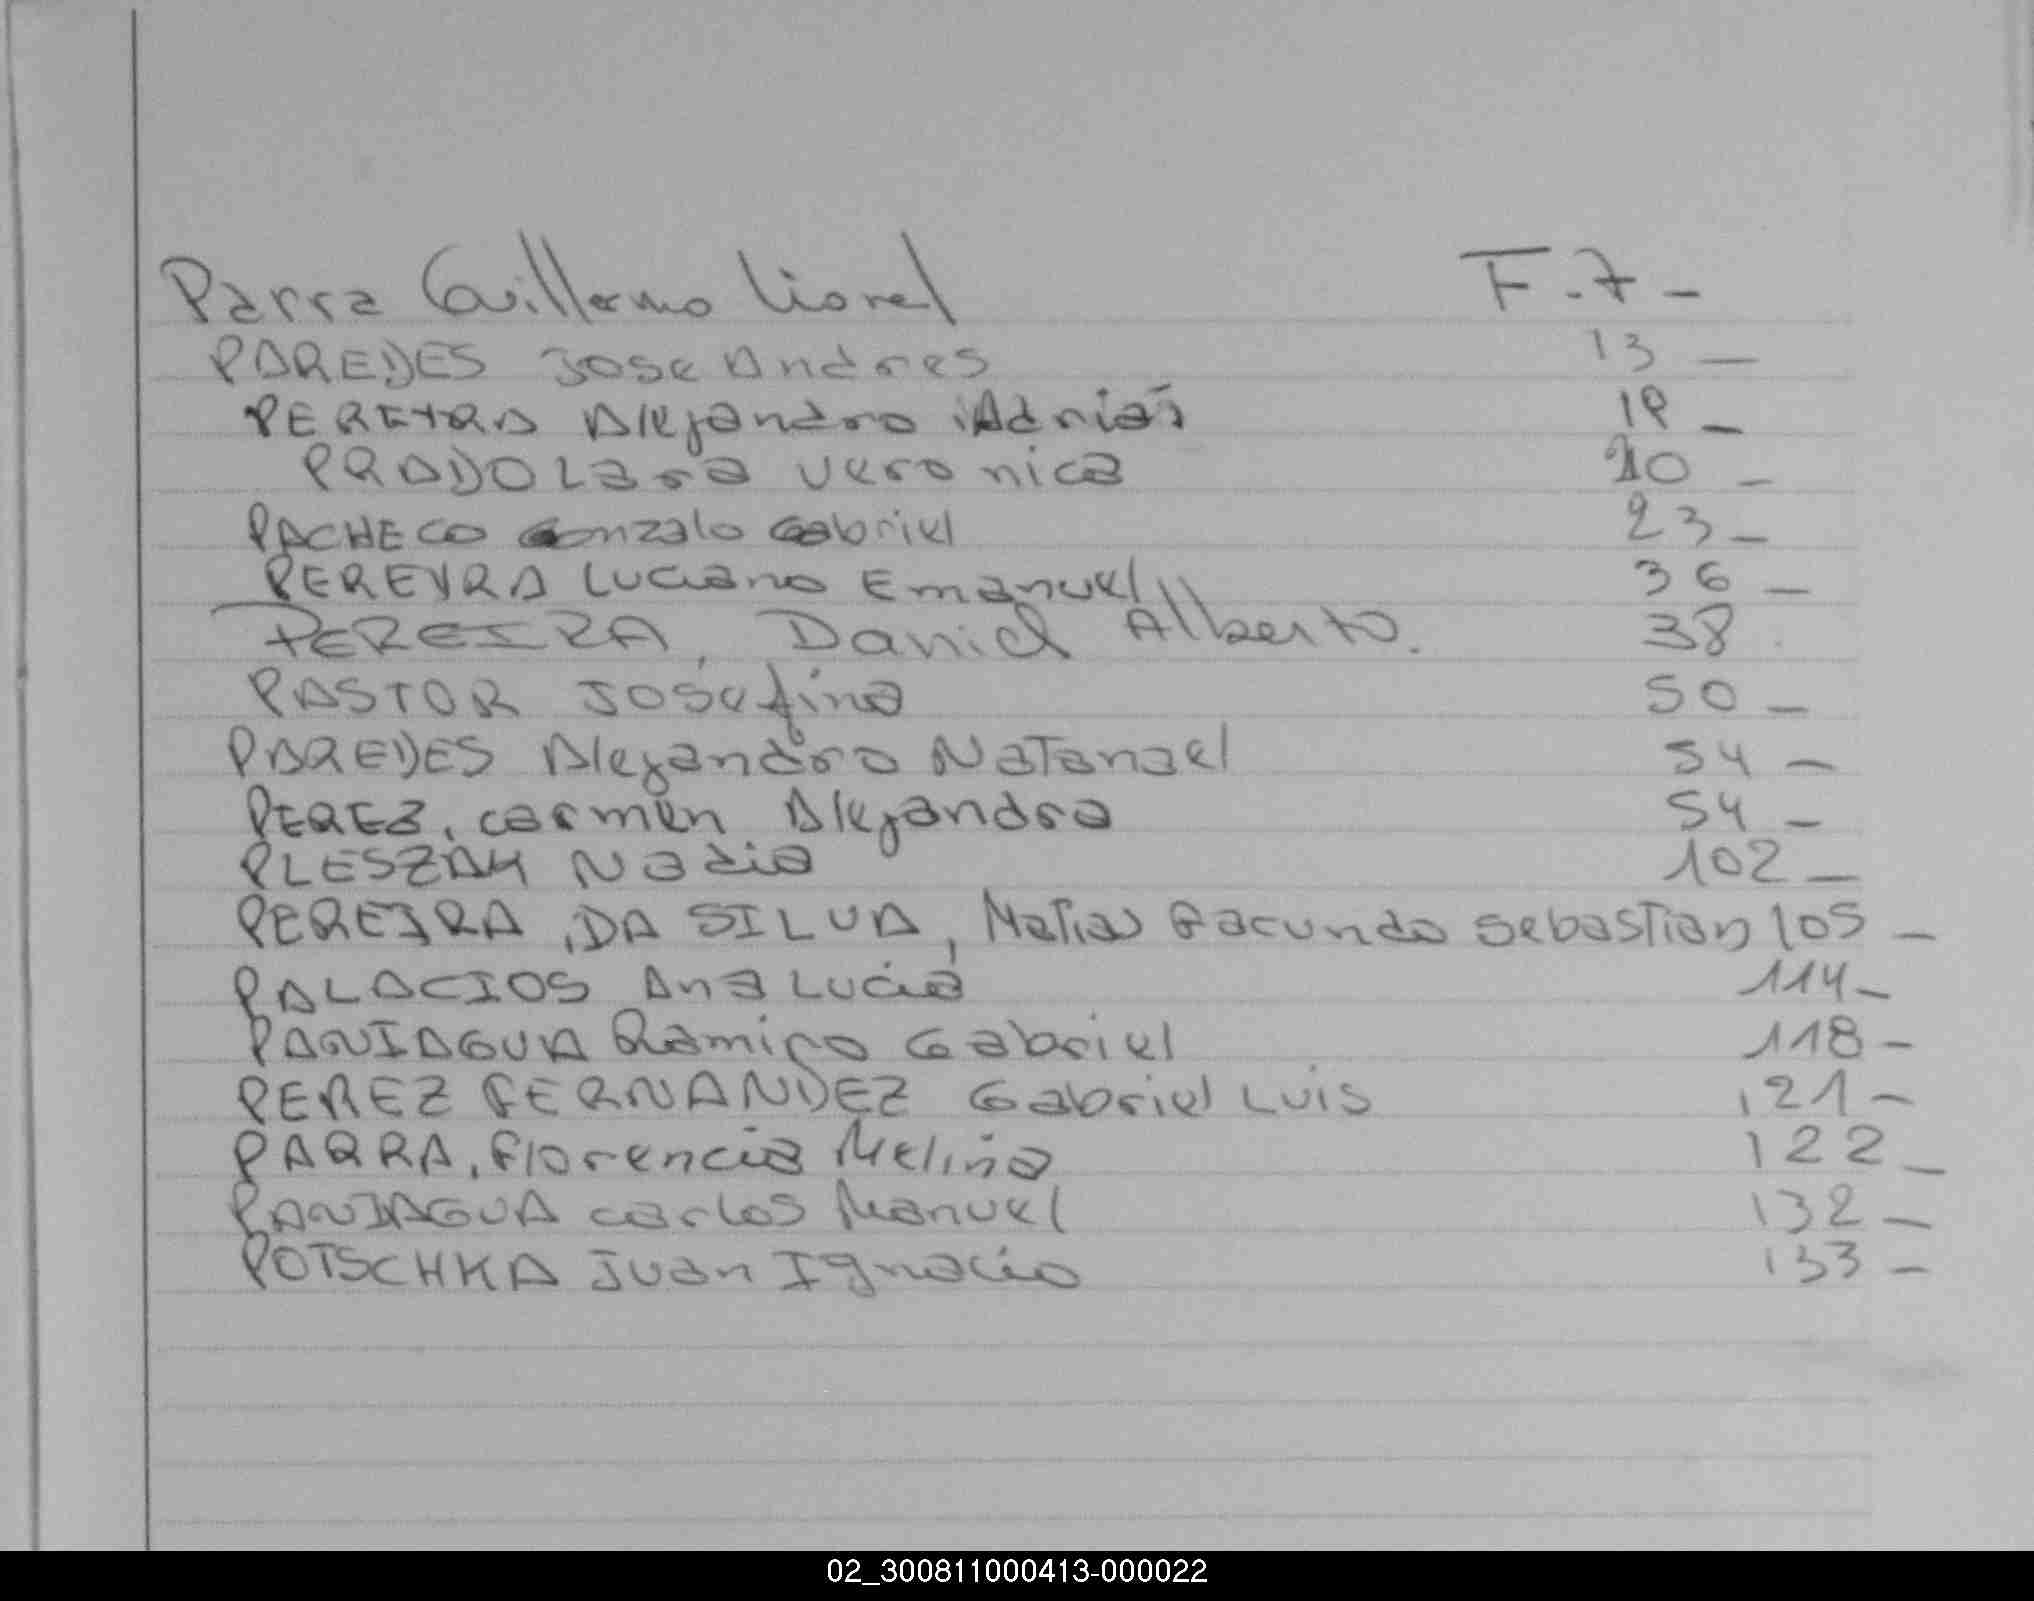 Parra Guillermo Lionel F. 7 -
PAREDES Jose Andres 13 -
PEREYRA Alejandro Adrian 19 -
PRADO Lara Veronica 20 -
PACHECO Gonzalo Gabriel 23 -
PEREYRA Luciano Emanuel 36 -
PEREIRA, Daniel Alberto. 38
PASTOR Josefina 50 -
PAREDES Alejandro Natanael 54 -
PEREZ, Carmen Alejandra 54 -
PLESZAK Nadia 102 -
PEREIRA DA SILVA, Matias Facundo Sebastian 105 -
PALACIOS Ana Lucia 114 -
PANIAGUA Ramiro Gabriel 118 -
PEREZ FERNANDEZ Gabriel Luis 121 -
PARRA, Florencia Melina 122 -
PANIAGUA Carlos Manuel 132 -
POTSCHKA Juan Ignacio 133 -
02_300811000413-000022